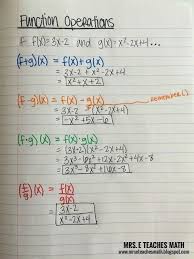 Function Operations
If f(x)=3x-2 and g(x)=x²-2x+4...
(f+g)(x) = f(x)+g(x)
= 3x-2+x²-2x+4
= x²+x+2
(f-g)(x) = f(x)-g(x)
remember!
= 3x-2-(x²-2x+4)
= 3x-2-x²+2x-4
= -x²+5x-6
(f·g)(x) = f(x)·g(x)
= (3x-2)(x²-2x+4)
= 3x³-6x²+12x-2x²+4x-8
= 3x³-8x²+16x-8
(f/g)(x) = f(x)/g(x)
= 3x-2/x²-2x+4
MRS. E TEACHES MATH
www.mrseteachesmath.blogspot.com